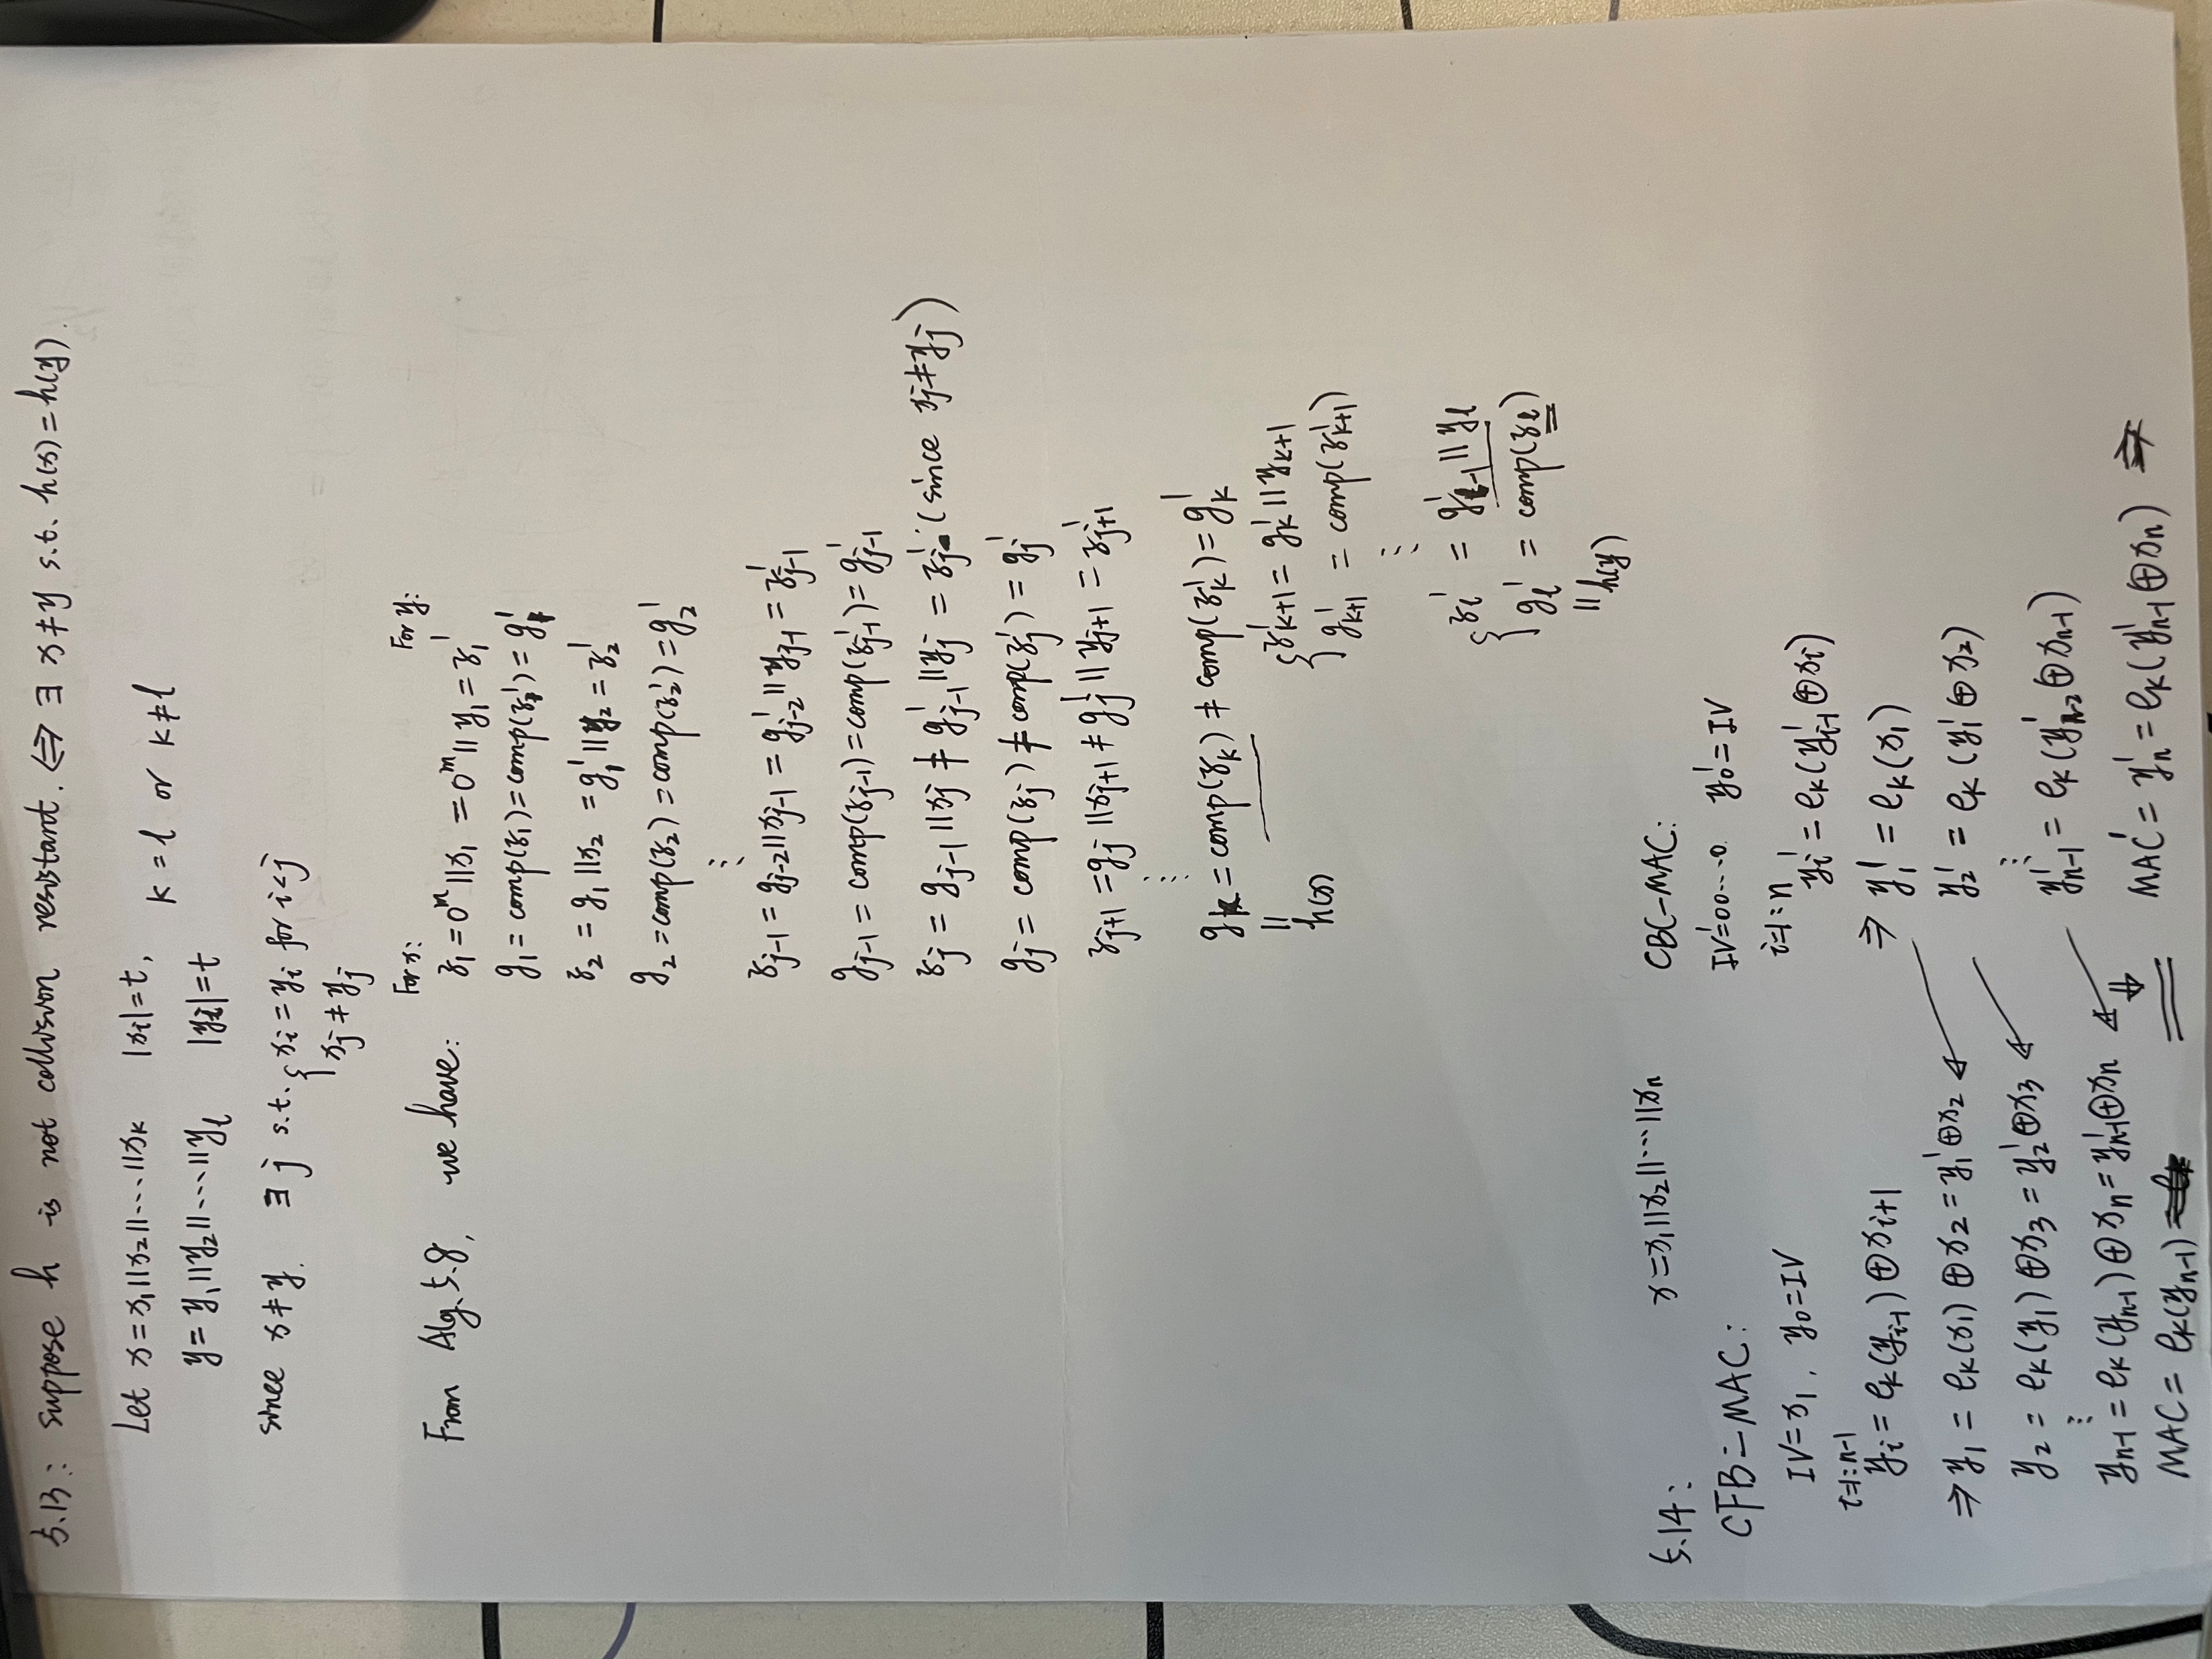 5.13: suppose h is not collision resistant. ⇔ ∃ x≠y s.t. h(x)=h(y).
Let x=x₁||x₂||···||xₖ |xᵢ|=t, k=l or k≠l
y=y₁||y₂||···||yₗ |yᵢ|=t
since x≠y. ∃ j s.t. { xᵢ=yᵢ for i<j
xⱼ≠yⱼ
From Alg. 5.8, we have: For x: For y:
z₁=0ᵐ||x₁ =0ᵐ||y₁=z₁'
g₁=comp(z₁)=comp(z₁')=g₁'
z₂=g₁||x₂ =g₁'||y₂=z₂'
g₂=comp(z₂)=comp(z₂')=g₂'
⋮
zⱼ₋₁=gⱼ₋₂||xⱼ₋₁=g'ⱼ₋₂||yⱼ₋₁=z'ⱼ₋₁
gⱼ₋₁=comp(zⱼ₋₁)=comp(z'ⱼ₋₁)=g'ⱼ₋₁
zⱼ=gⱼ₋₁||xⱼ ≠ g'ⱼ₋₁||yⱼ=zⱼ' (since xⱼ≠yⱼ)
gⱼ=comp(zⱼ)≠comp(zⱼ')=gⱼ'
zⱼ₊₁=gⱼ||xⱼ₊₁≠gⱼ'||yⱼ₊₁=z'ⱼ₊₁
⋮
gₖ=comp(zₖ)≠comp(zₖ')=gₖ'
|| { z'ₖ₊₁=gₖ'||yₖ₊₁
h(x) g'ₖ₊₁=comp(z'ₖ₊₁)
⋮
{ zₗ'=g'ₗ₋₁||yₗ
gₗ'=comp(zₗ)
||
h(y)
5.14: x=x₁||x₂||···||xₙ
CFB-MAC: CBC-MAC:
IV=x₁, y₀=IV IV'=00···0. y₀'=IV
i=1:n-1 i=1:n
yᵢ=eₖ(yᵢ₋₁)⊕xᵢ₊₁ yᵢ'=eₖ(y'ᵢ₋₁⊕xᵢ)
⇒ y₁=eₖ(x₁)⊕x₂=y₁'⊕x₂ ⇒ y₁'=eₖ(x₁)
y₂=eₖ(y₁)⊕x₃=y₂'⊕x₃ y₂'=eₖ(y₁'⊕x₂)
⋮ ⋮
yₙ₋₁=eₖ(yₙ₋₁)⊕xₙ=y'ₙ₋₁⊕xₙ y'ₙ₋₁=eₖ(y'ₙ₋₂⊕xₙ₋₁)
⇓
MAC=eₖ(yₙ₋₁) = MAC'=yₙ'=eₖ(y'ₙ₋₁⊕xₙ)